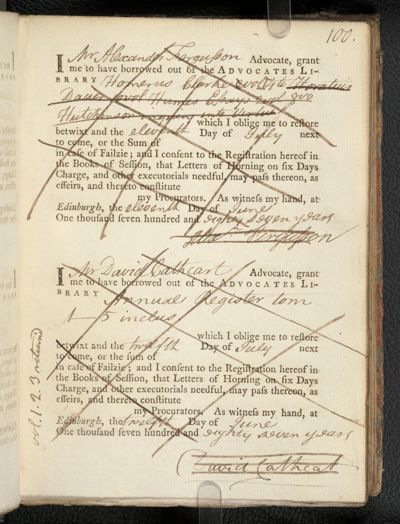 100.
I Mr Alexander Fergusson Advocate, grant
me to have borrowed out of the ADVOCATES LI-
BRARY Homerus Clarke Horatius
Hume's Essays
Hutchinson
which I oblige me to restore
betwixt and the eleventh Day of July next
to come, or the Sum of
in case of Failzie; and I consent to the Registration hereof in
the Books of Session, that Letters of Horning on six Days
Charge, and other executorials needful, may pass thereon, as
effeirs, and thereto constitute
my Procurators. As witness my hand, at
Edinburgh, the eleventh Day of June
One thousand seven hundred and eighty seven years
Alexr Fergusson
I Mr David Cathcart Advocate, grant
me to have borrowed out of the ADVOCATES LI-
BRARY Annual Register tom
1-5 inclus
which I oblige me to restore
betwixt and the twelfth Day of July next
to come, or the sum of
in case of Failzie; and I consent to the Registration hereof in
the Books of Session, that Letters of Horning on six Days
Charge, and other executorials needful, may pass thereon, as
effeirs, and thereto constitute
my Procurators. As witness my hand, at
Edinburgh, the twelfth Day of June
One thousand seven hundred and eighty seven years
David Cathcart
vol. 1. 2. 3 returnd